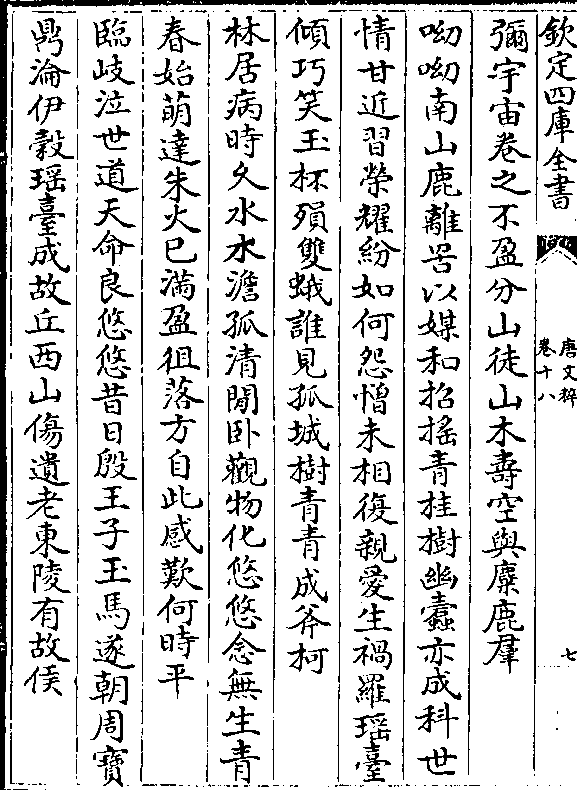 欽定四庫全書
唐文粹
卷十八
七
彌宇宙卷之不盈分山徒山木壽空與麋鹿羣
呦呦南山鹿離罟以媒和招搖青桂樹幽蠹亦成科世
情甘近習榮耀紛如何怨憎未相復親愛生禍羅瑶臺
傾巧笑玉杯殞雙蛾誰見孤城樹青青成斧柯
林居病時久水木澹孤清閒卧觀物化悠悠念無生青
春始萌達朱火已滿盈徂落方自此感歎何時平
臨岐泣世道天命良悠悠昔日殷王子玉馬遂朝周寶
鼎淪伊榖瑶臺成故丘西山傷遺老東陵有故侯